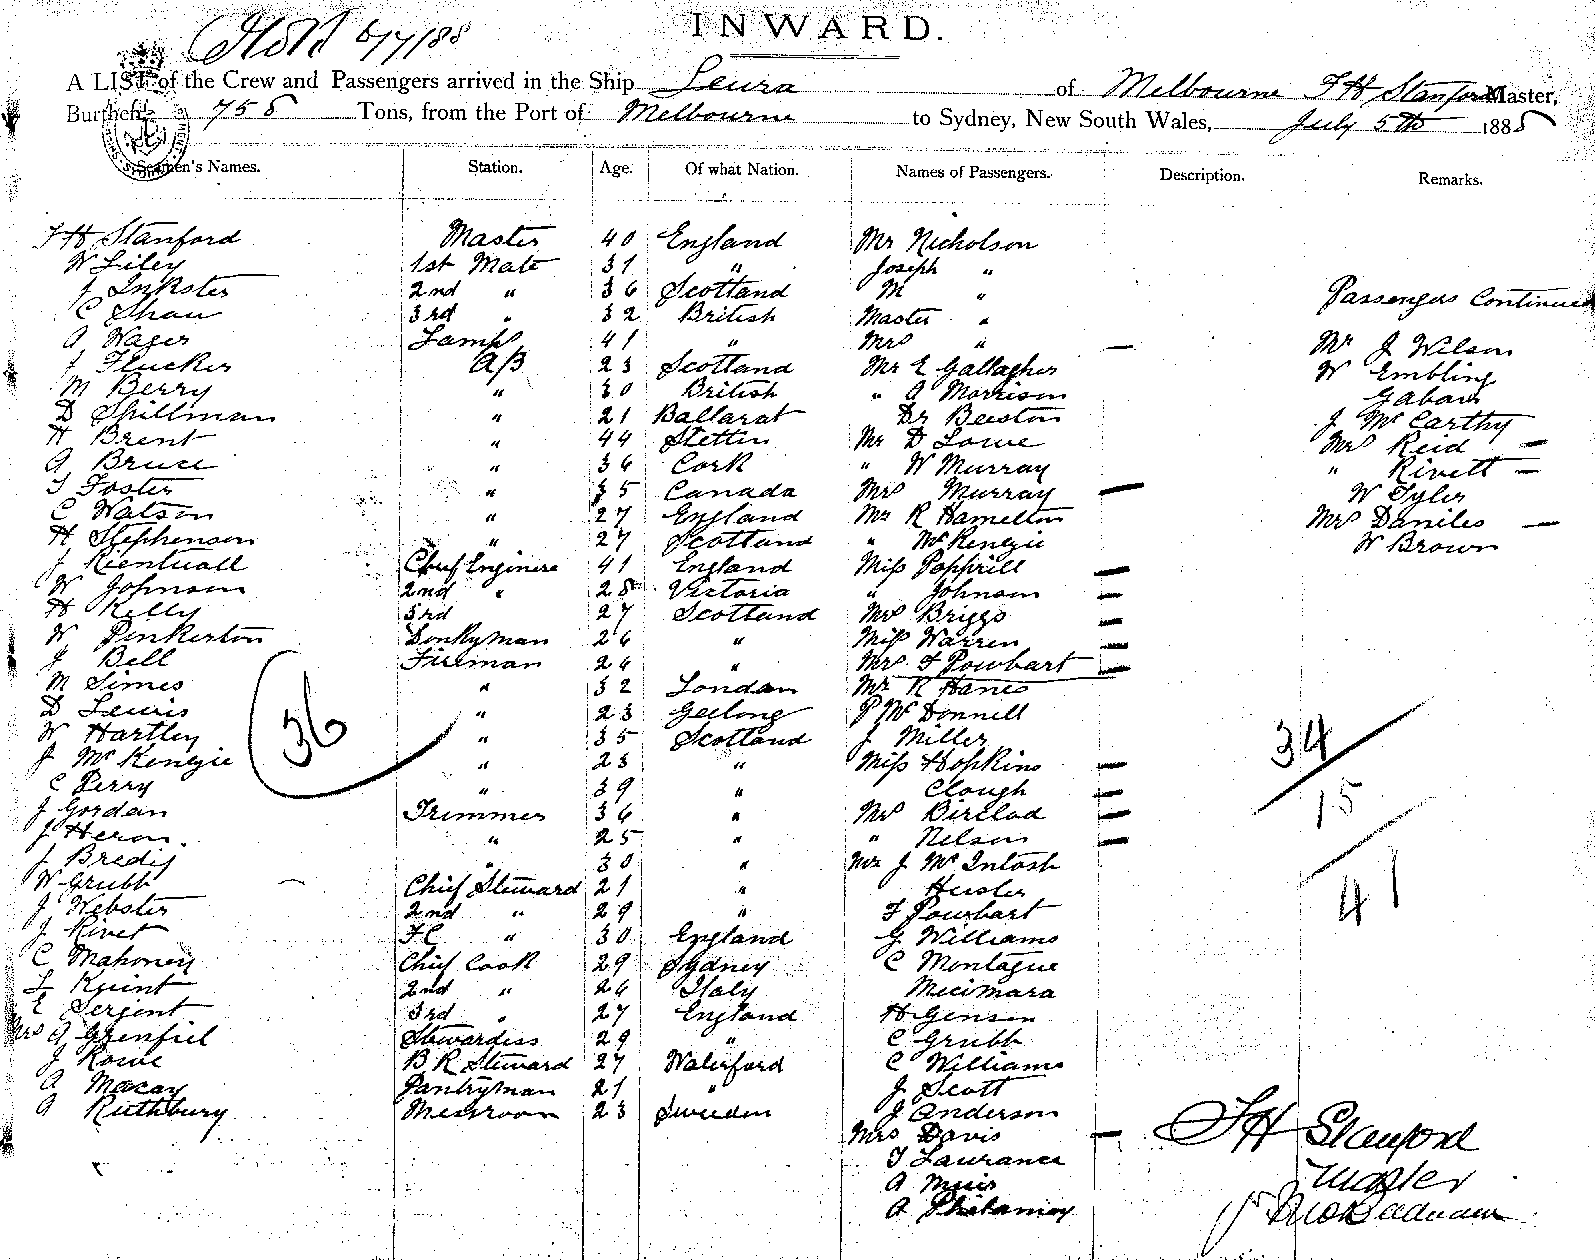 Hold 6/7/88
INWARD.
A LIST of the Crew and Passengers arrived in the Ship Leura of Melbourne F H Stanford Master,
Burthen 758 Tons, from the Port of Melbourne to Sydney, New South Wales, July 5th 1888
Seamen's Names. Station. Age. Of what Nation. Names of Passengers. Description. Remarks.
F H Stanford Master 40 England Mr Nicholson
W Liley 1st Mate 31 " Joseph "
J Inkster 2nd " 36 Scotland M " Passengers Continued
C Shaw 3rd " 32 British Master "
A Wager Lamps 41 " Mrs " — Mr J Wilson
J Flucker AB 23 Scotland Mr E Gallagher W Embling
M Berry " 30 British " A Morrison Gabain
D Spillman " 21 Ballarat Dr Beeston J McCarthy
H Brent " 44 Stettin Mr D Lowe Mrs Reid —
A Bruce " 36 Cork " W Murray " Rivett —
T Foster " 35 Canada Mrs Murray — W Tyler
C Watson " 27 England Mr R Hamelton Mrs Daniles —
H Stephenson " 27 Scotland " McKenzie W Brown
J Chief Enginere 41 England Miss Popprill —
W Johnson 2nd " 28 Victoria " Johnson —
H Kelly 3rd 27 Scotland Mrs Briggs —
W Pinkerton Donkyman 26 " Miss Warren —
J Bell Fireman 24 " Mrs F Powhart —
M Simes " 32 London Mr R Hanes
D Lewis " 23 Geelong P McDonnell
W Hartley " 35 Scotland J Miller
J McKenzie " 23 " Miss Hopkins —
C Perry " 39 " Clough —
J Gordan Trimmer 36 " Mrs —
J Heron " 25 " " Nelson —
J Bredij " 30 " Mr J McIntosh
W Grubb Chief Steward 21 "
J Webster 2nd " 29 " F Powhart
J Rivet FC " 30 England G Williams
C Mahoney Chief Cook 29 Sydney C Montague
L Kuint 2nd " 26 Italy Micimara
E Serjent 3rd " 27 England H Gensen
Mrs A Grenfiel Stewardess 29 " C Grubb
J Rowe B R Steward 27 Waterford C Williams
A Macay Pantryman 21 " J Scott
A Ruthbury Messroom 23 Sweden J Anderson
Mrs Davis —
T Laurance
A Muir
A
36
34
15
41
F H Stanford
Master